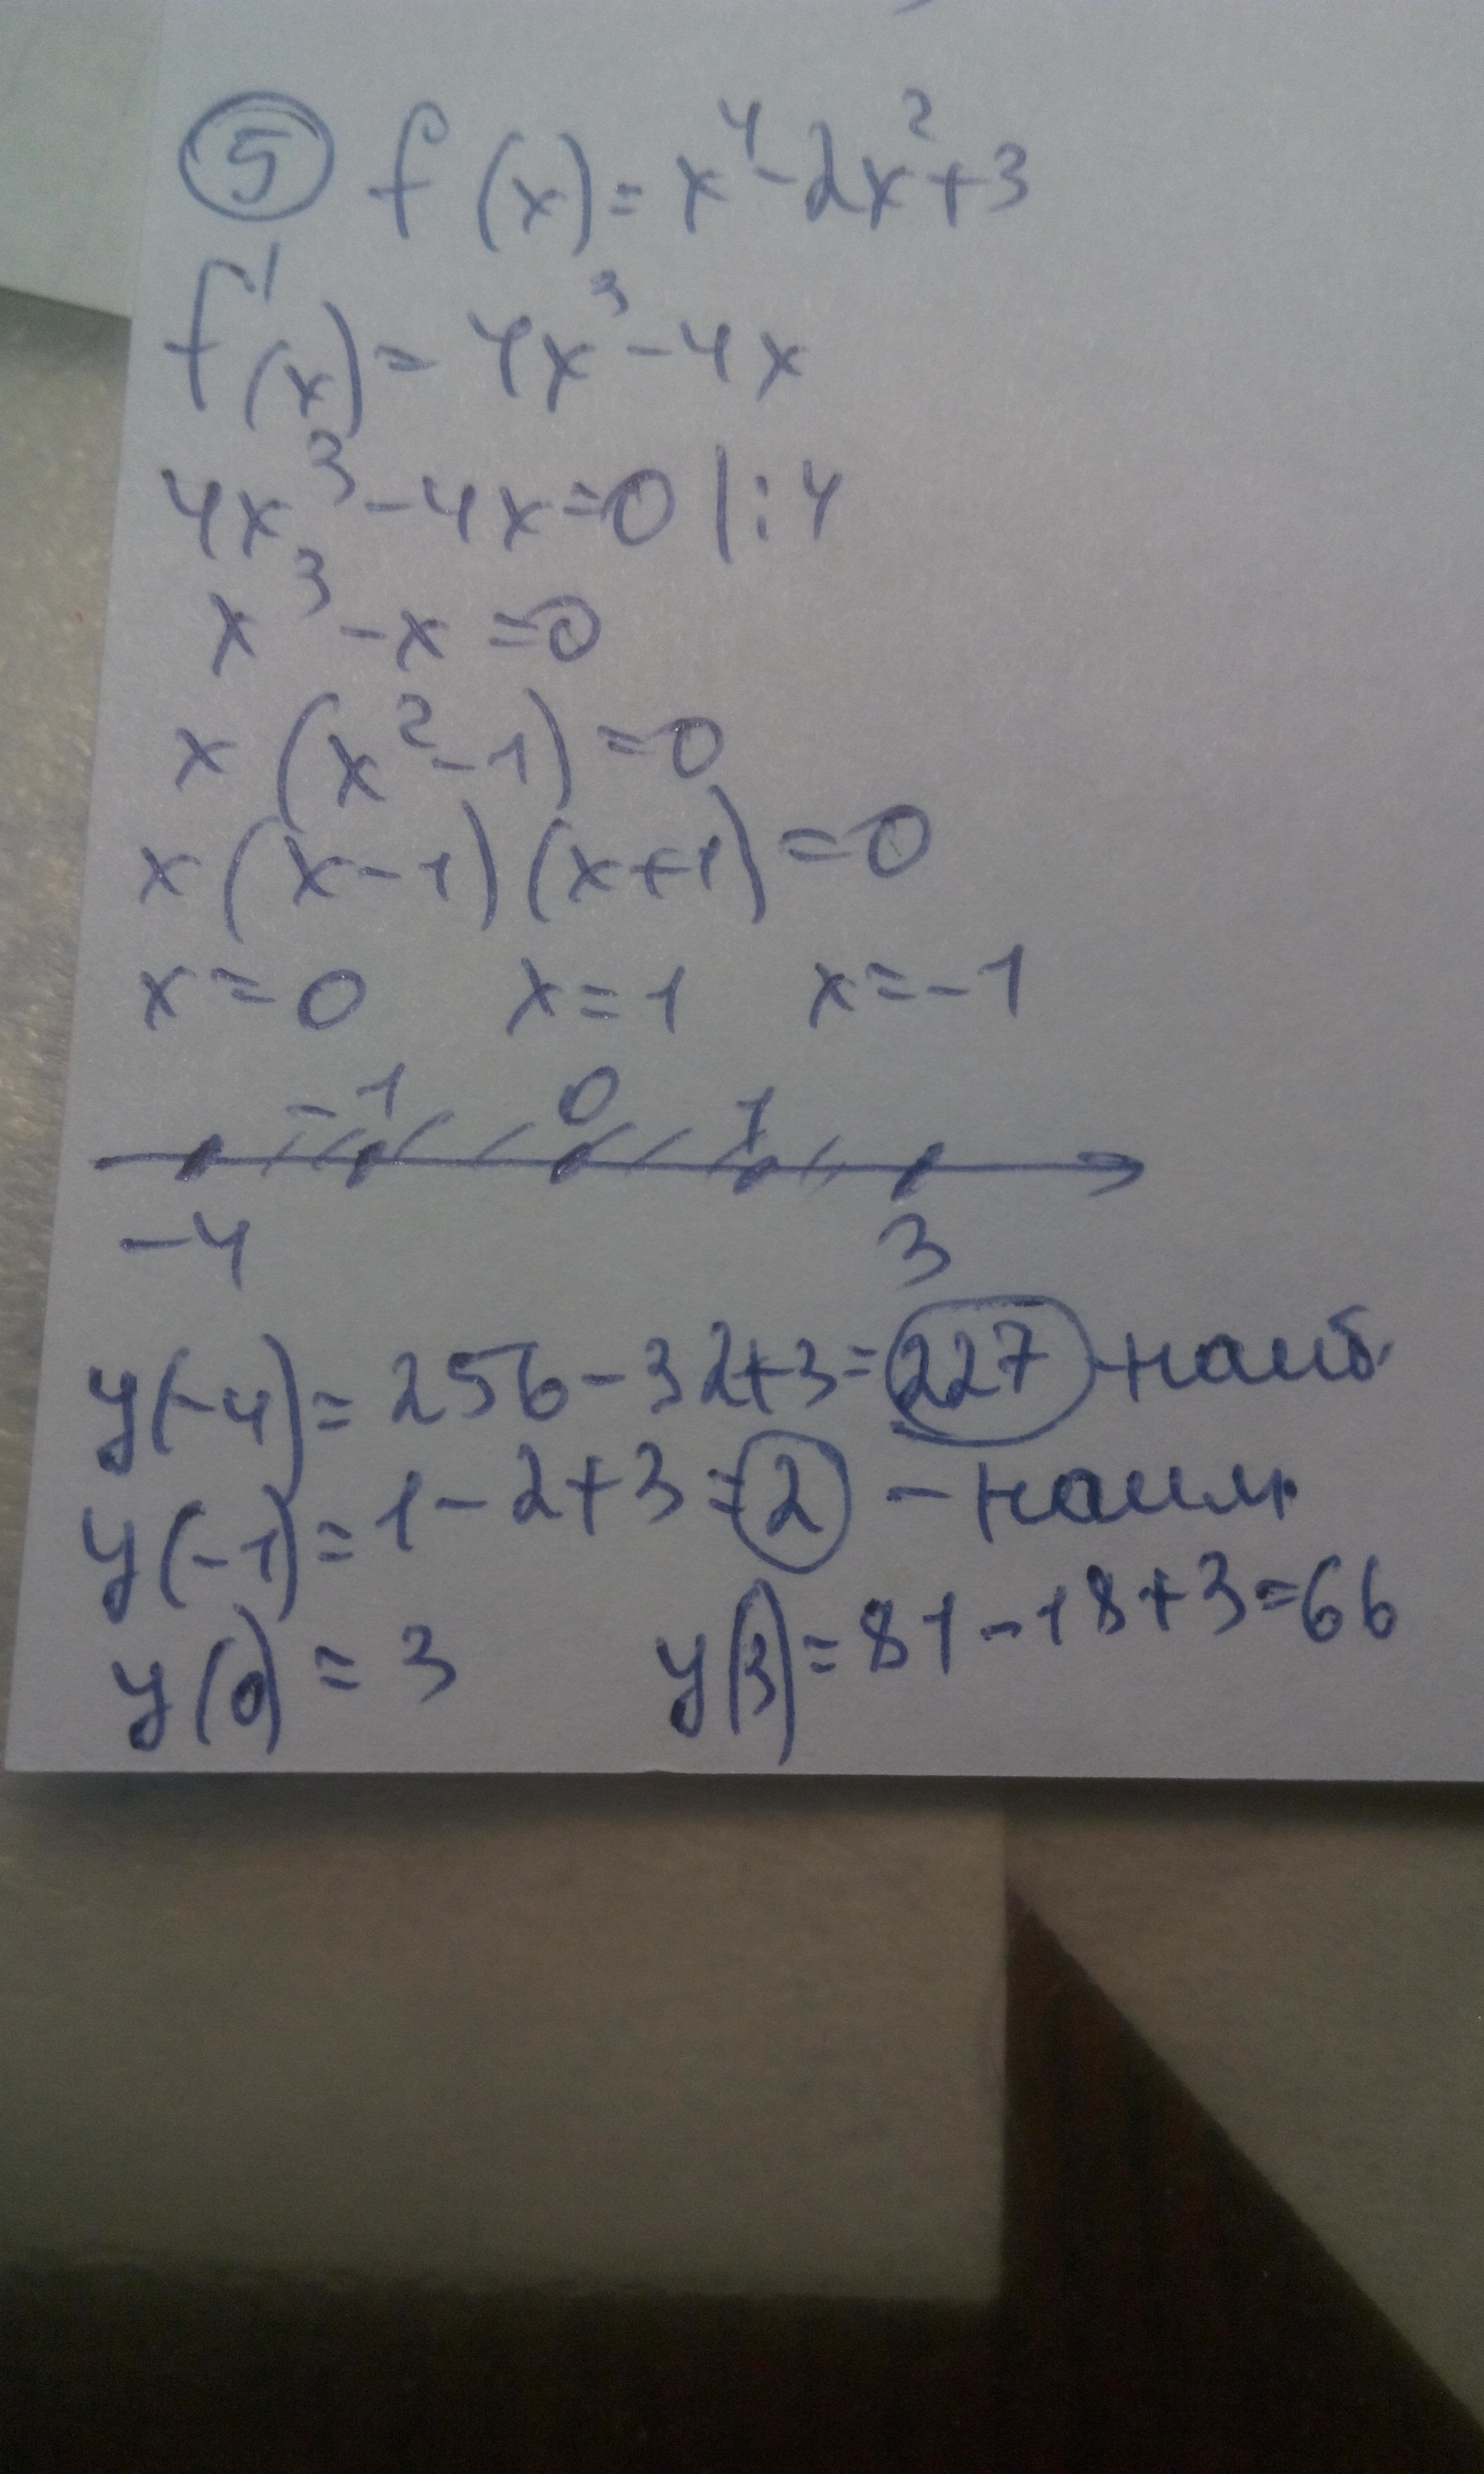 5 f(x)=x⁴-2x²+3
f'(x)=4x³-4x
4x³-4x=0 |:4
x³-x=0
x(x²-1)=0
x(x-1)(x+1)=0
x=0 x=1 x=-1
-1 0 1
-4 3
y(-4)=256-32+3=227 -наиб.
y(-1)=1-2+3=2 -наим.
y(0)=3 y(3)=81-18+3=66